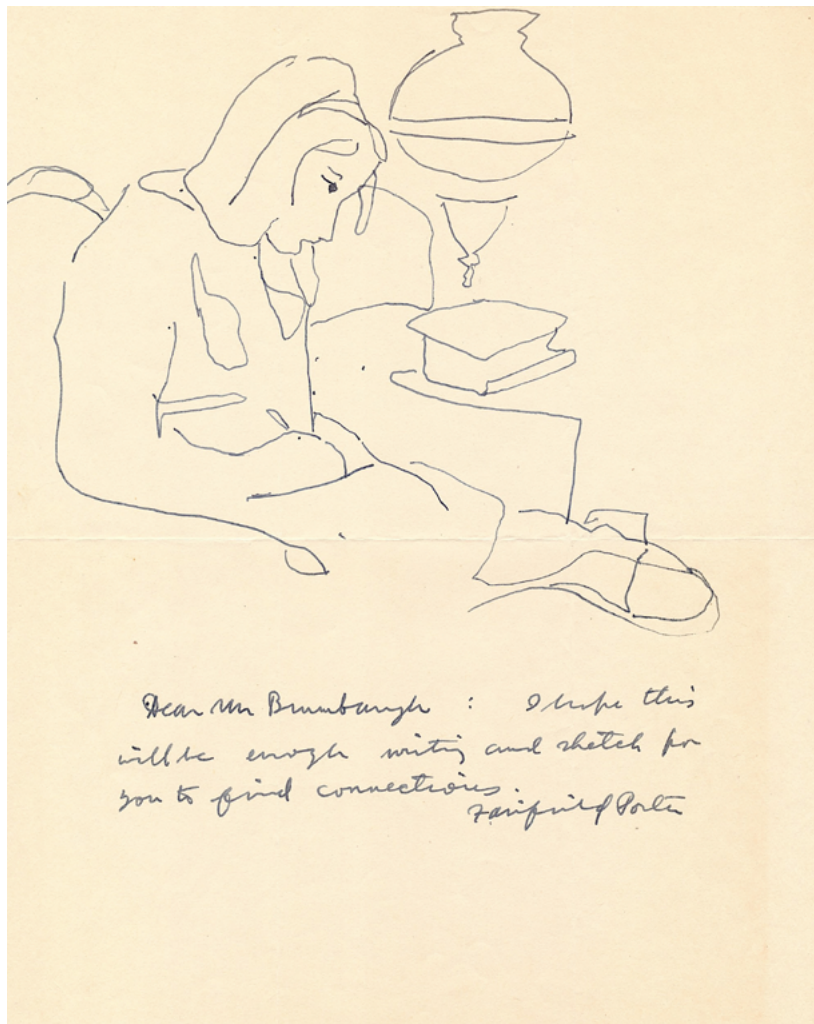 Dear Mr Brumbaugh : I hope this
will be enough writing and sketch for
you to find connections.
Fairfield Porter